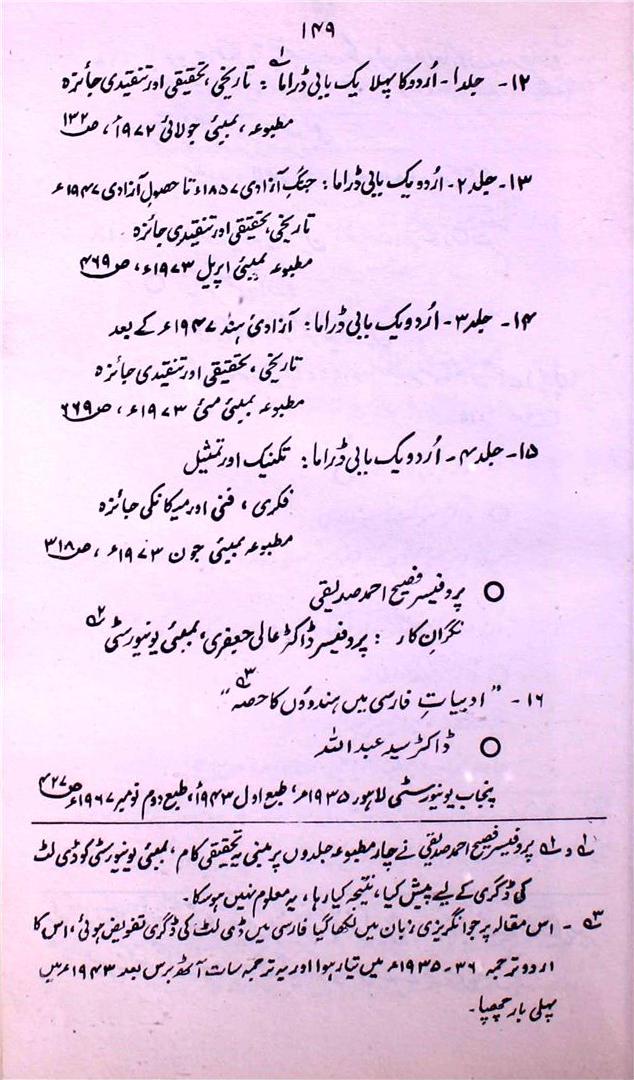 ۱۴۹
۱۲۔ جلد ۱۔ اُردو کا پہلا یک بابی ڈراما ۱؎ : تاریخی، تحقیقی اور تنقیدی جائزہ
مطبوعہ، بمبئی جولائی ۱۹۷۲ء، ص ۱۳۲
۱۳۔ جلد ۲۔ اُردو یک بابی ڈراما: جنگِ آزادی ۱۸۵۷ء تا حصولِ آزادی ۱۹۴۷ء
تاریخی، تحقیقی اور تنقیدی جائزہ۔
مطبوعہ بمبئی اپریل ۱۹۷۳ء، ص ۴۶۹
۱۴۔ جلد ۳۔ اُردو یک بابی ڈراما: آزادیٔ ہند ۱۹۴۷ء کے بعد
تاریخی، تحقیقی اور تنقیدی جائزہ
مطبوعہ بمبئی مئی ۱۹۷۳ء، ص ۶۶۹
۱۵۔ جلد ۴۔ اُردو یک بابی ڈراما: تکنیک اور تمثیل
فکری، فنی اور میکانکی جائزہ
مطبوعہ بمبئی جون ۱۹۷۳ء، ص ۳۱۸
○ پروفیسر فصیح احمد صدیقی
نگرانِ کار : پروفیسر ڈاکٹر عالی جعفری، بمبئی یونیورسٹی ۲؎
۱۶۔ "ادبیاتِ فارسی میں ہندوؤں کا حصہ ۳؎"
○ ڈاکٹر سید عبداللہ
پنجاب یونیورسٹی لاہور ۱۹۳۵ء، طبع اول ۱۹۴۳ء، طبع دوم نومبر ۱۹۶۷ء ص ۴۲۷
۱؎ و ۲؎ پروفیسر فصیح احمد صدیقی نے چار مطبوعہ جلدوں پر مبنی یہ تحقیقی کام، بمبئی یونیورسٹی کو ڈی لٹ
کی ڈگری کے لیے پیش کیا، نتیجہ کیا رہا، یہ معلوم نہیں ہو سکا۔
۳؎ ۔ اس مقالہ پر جو انگریزی زبان میں لکھا گیا فارسی میں ڈی لٹ کی ڈگری تفویض ہوئی، اس کا
اردو ترجمہ ۳۶۔۱۹۳۵ء میں تیار ہوا اور یہ ترجمہ سات آٹھ برس بعد ۱۹۴۳ء میں
پہلی بار چھپا۔